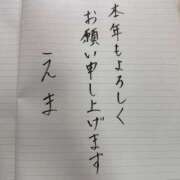 本年もよろしく
お願い申し上げます
えま